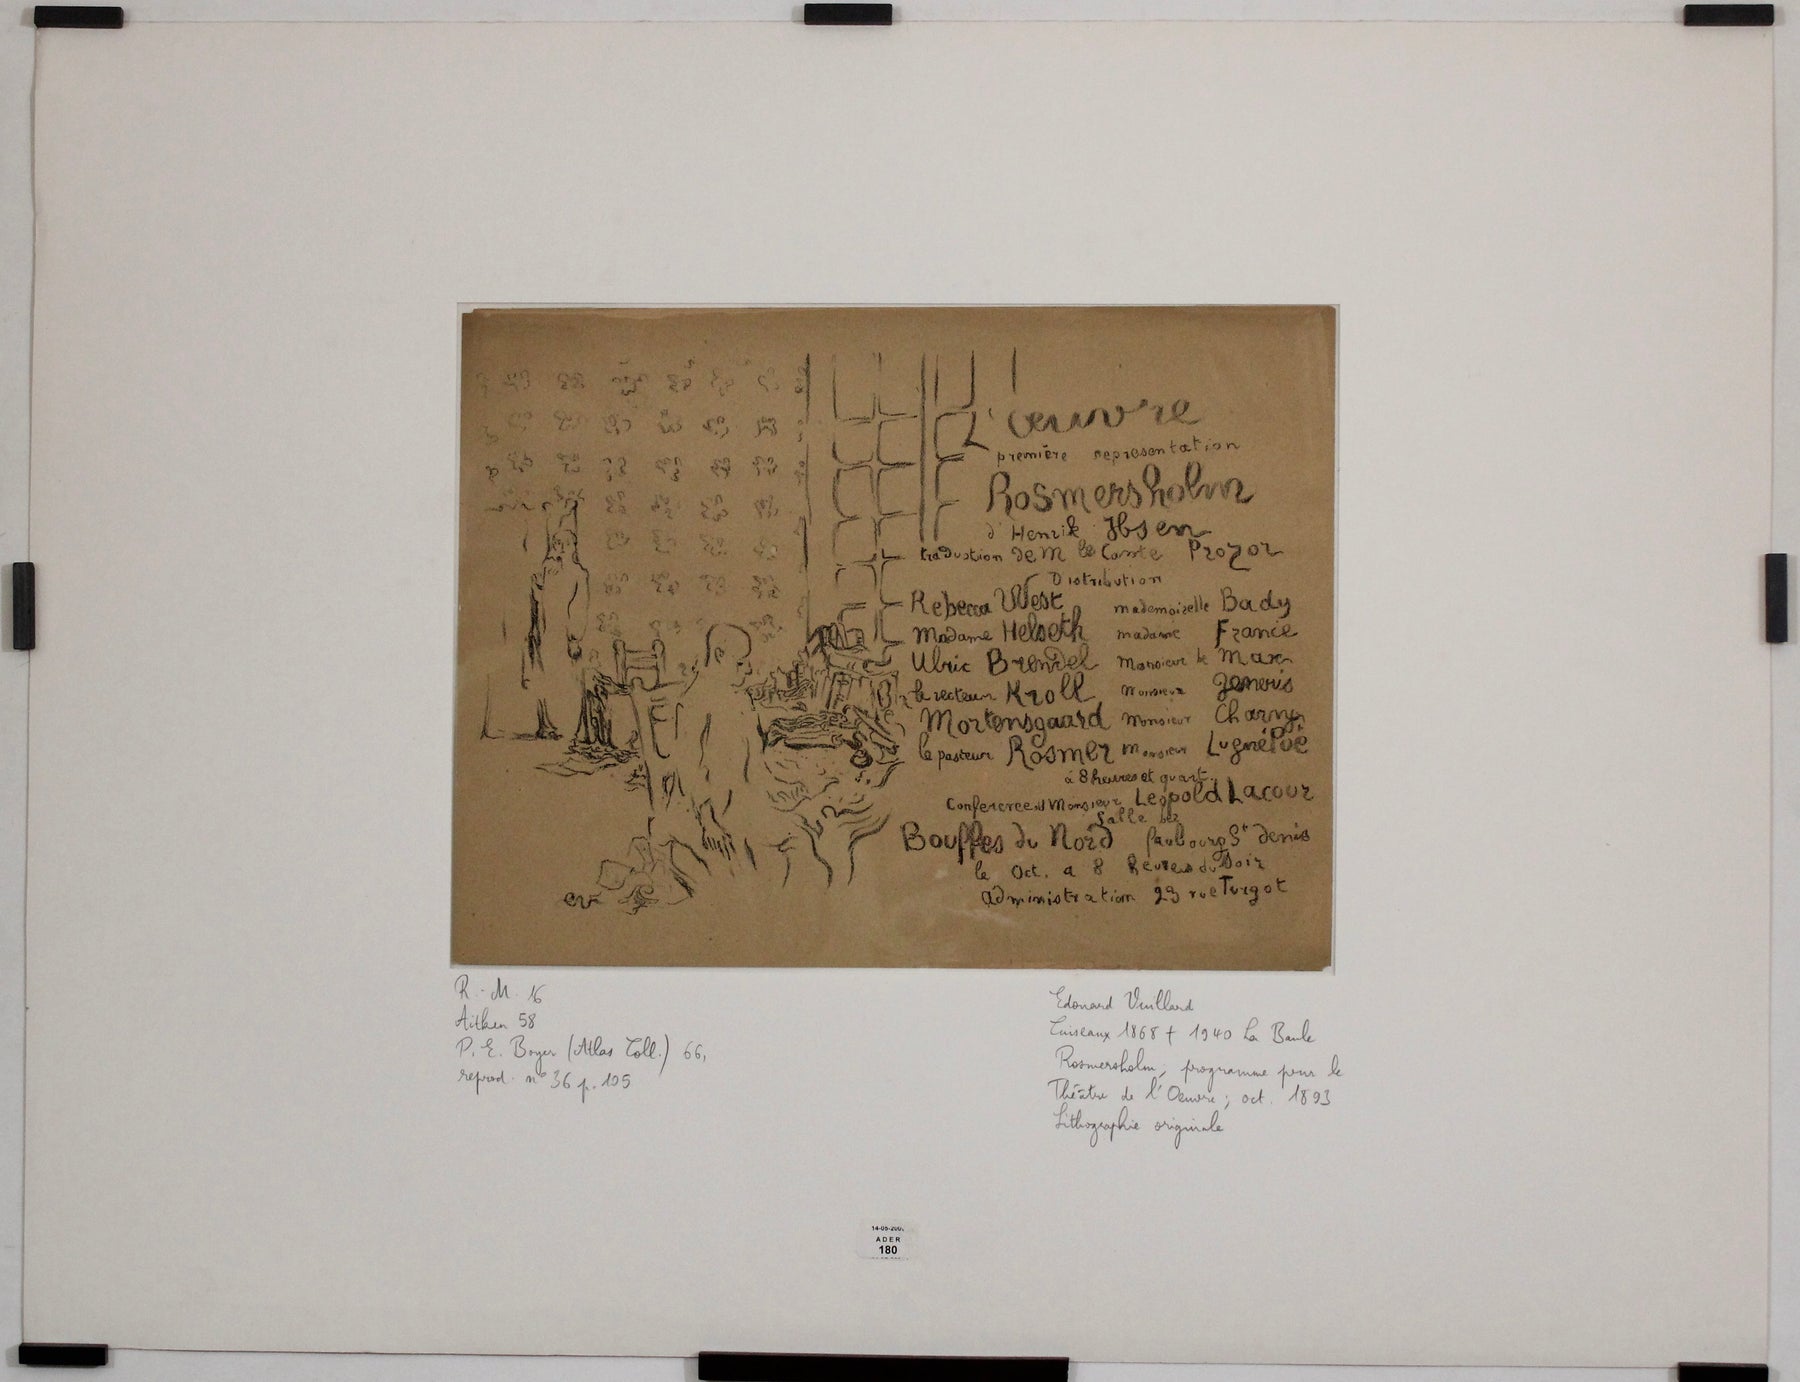 L'œuvre
première representation
Rosmersholm
d'Henrik Ibsen
traduction de M le Comte Prozor
Distribution
Rebecca West mademoiselle Bady
Madame Helseth madame France
Ulric Brendel Monsieur de Max
le recteur Kroll Monsieur
Mortensgaard Monsieur Charny
le pasteur Rosmer Monsieur Lugné Poë
à 8 heures et quart
Conference de Monsieur Leopold Lacour
Salle des
Bouffes du Nord faubourg St denis
le Oct. a 8 heures du Soir
administration 23 rue Turgot
ev
R.-M. 16
Aitken 58
P. E. Boyer (Atlas Coll.) 66,
reprod. n° 36 p. 105
Edouard Vuillard
Cuiseaux 1868 † 1940 La Baule
Rosmersholm, programme pour le
Théâtre de l'Oeuvre; oct. 1893
Lithographie originale
ADER
180